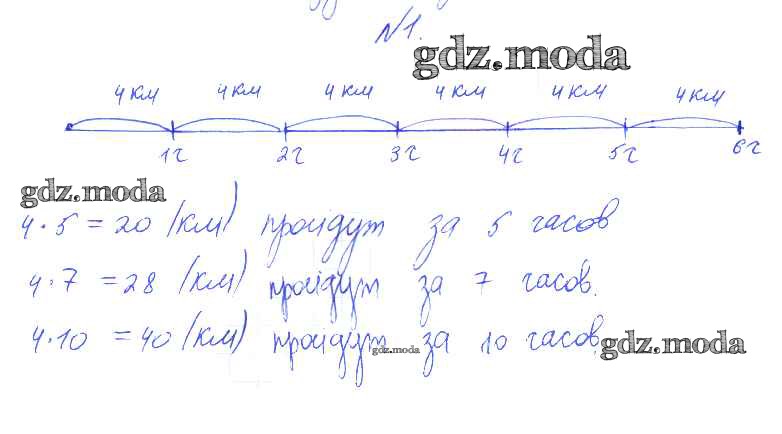 №1.
gdz.moda
4 км 4 км 4 км 4 км 4 км 4 км
1ч 2ч 3ч 4ч 5ч 6ч
gdz.moda
4 · 5 = 20 (км) пройдут за 5 часов
4 · 7 = 28 (км) пройдут за 7 часов.
4 · 10 = 40 (км) пройдут за 10 часов.
gdz.moda
gdz.moda